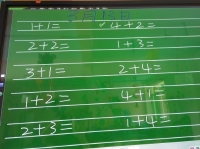 1+1= 4+2=
2+2= 1+3=
3+1= 2+4=
1+2= 4+1=
2+3= 1+4=